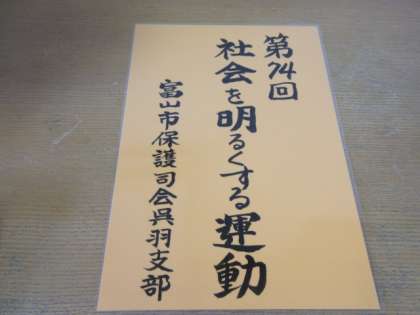 第74回
社会を明るくする運動
富山市保護司会呉羽支部